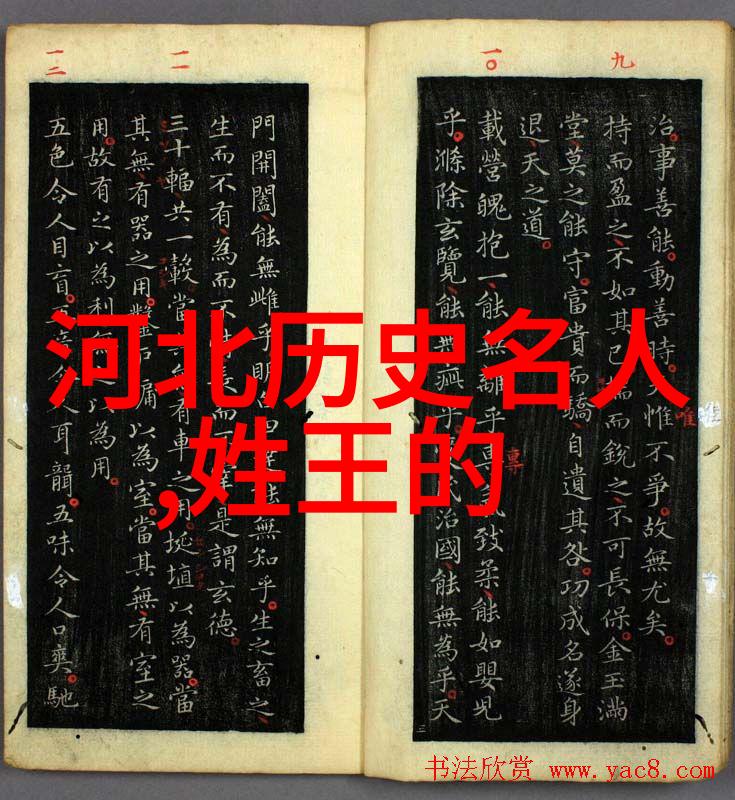 河北历史名人
,姓王的
九
治事善能動善時夫惟不爭故無尤矣
唯
持而盈之不如其已揣而銳之不可長保金玉滿
堂莫之能守富貴而驕自遺其咎功成名遂身
退天之道
一〇
載營魄抱一能無離乎致柔能如嬰兒
專
乎滌除玄覽能無疵乎治國能無為乎天
門開闔能無雌乎無知乎生之畜之
生而不有為而不是謂玄德
一一
三十輻共一轂當有車之用埏埴以為器當
其無有器之用鑿戶牖以為室當其無有室之
用故有之以為利以為用
一二
五色令人目盲人耳聾五味令人口爽馳
书法欣赏 www.yac8.com